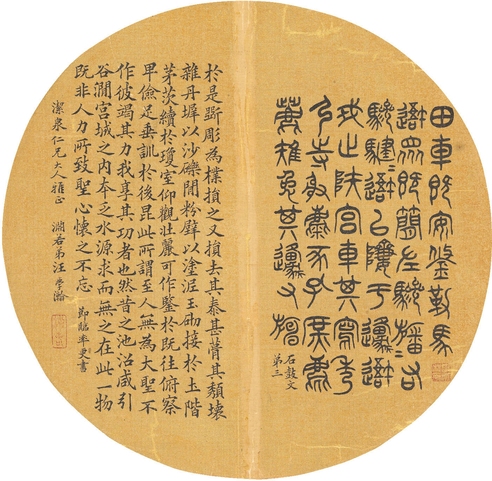 田車既安鋚勒馬
𨖍眾既簡左驂旛=右
驂騝𨖍以隮于邍𨖍
戎止陕宮車其寫秀
弓寺射麋豕孔庶
雉兔其邍又
石鼓文
第三
於是斲彫為樸損之又損去其泰甚葺其頹壞
雜丹墀以沙礫間粉壁以塗泥玉砌接於土階
茅茨續於瓊室仰觀壯麗可作鑒於既往俯察
卑儉足垂訓於後昆此所謂至人無為大聖不
作彼竭其力我享其功者也然昔之池沼咸引
谷澗宮城之內本乏水源求而無之在此一物
既非人力所致聖心懷之不忘 節臨率更書
潔泉仁兄大人雅正 澗若弟汪學瀚